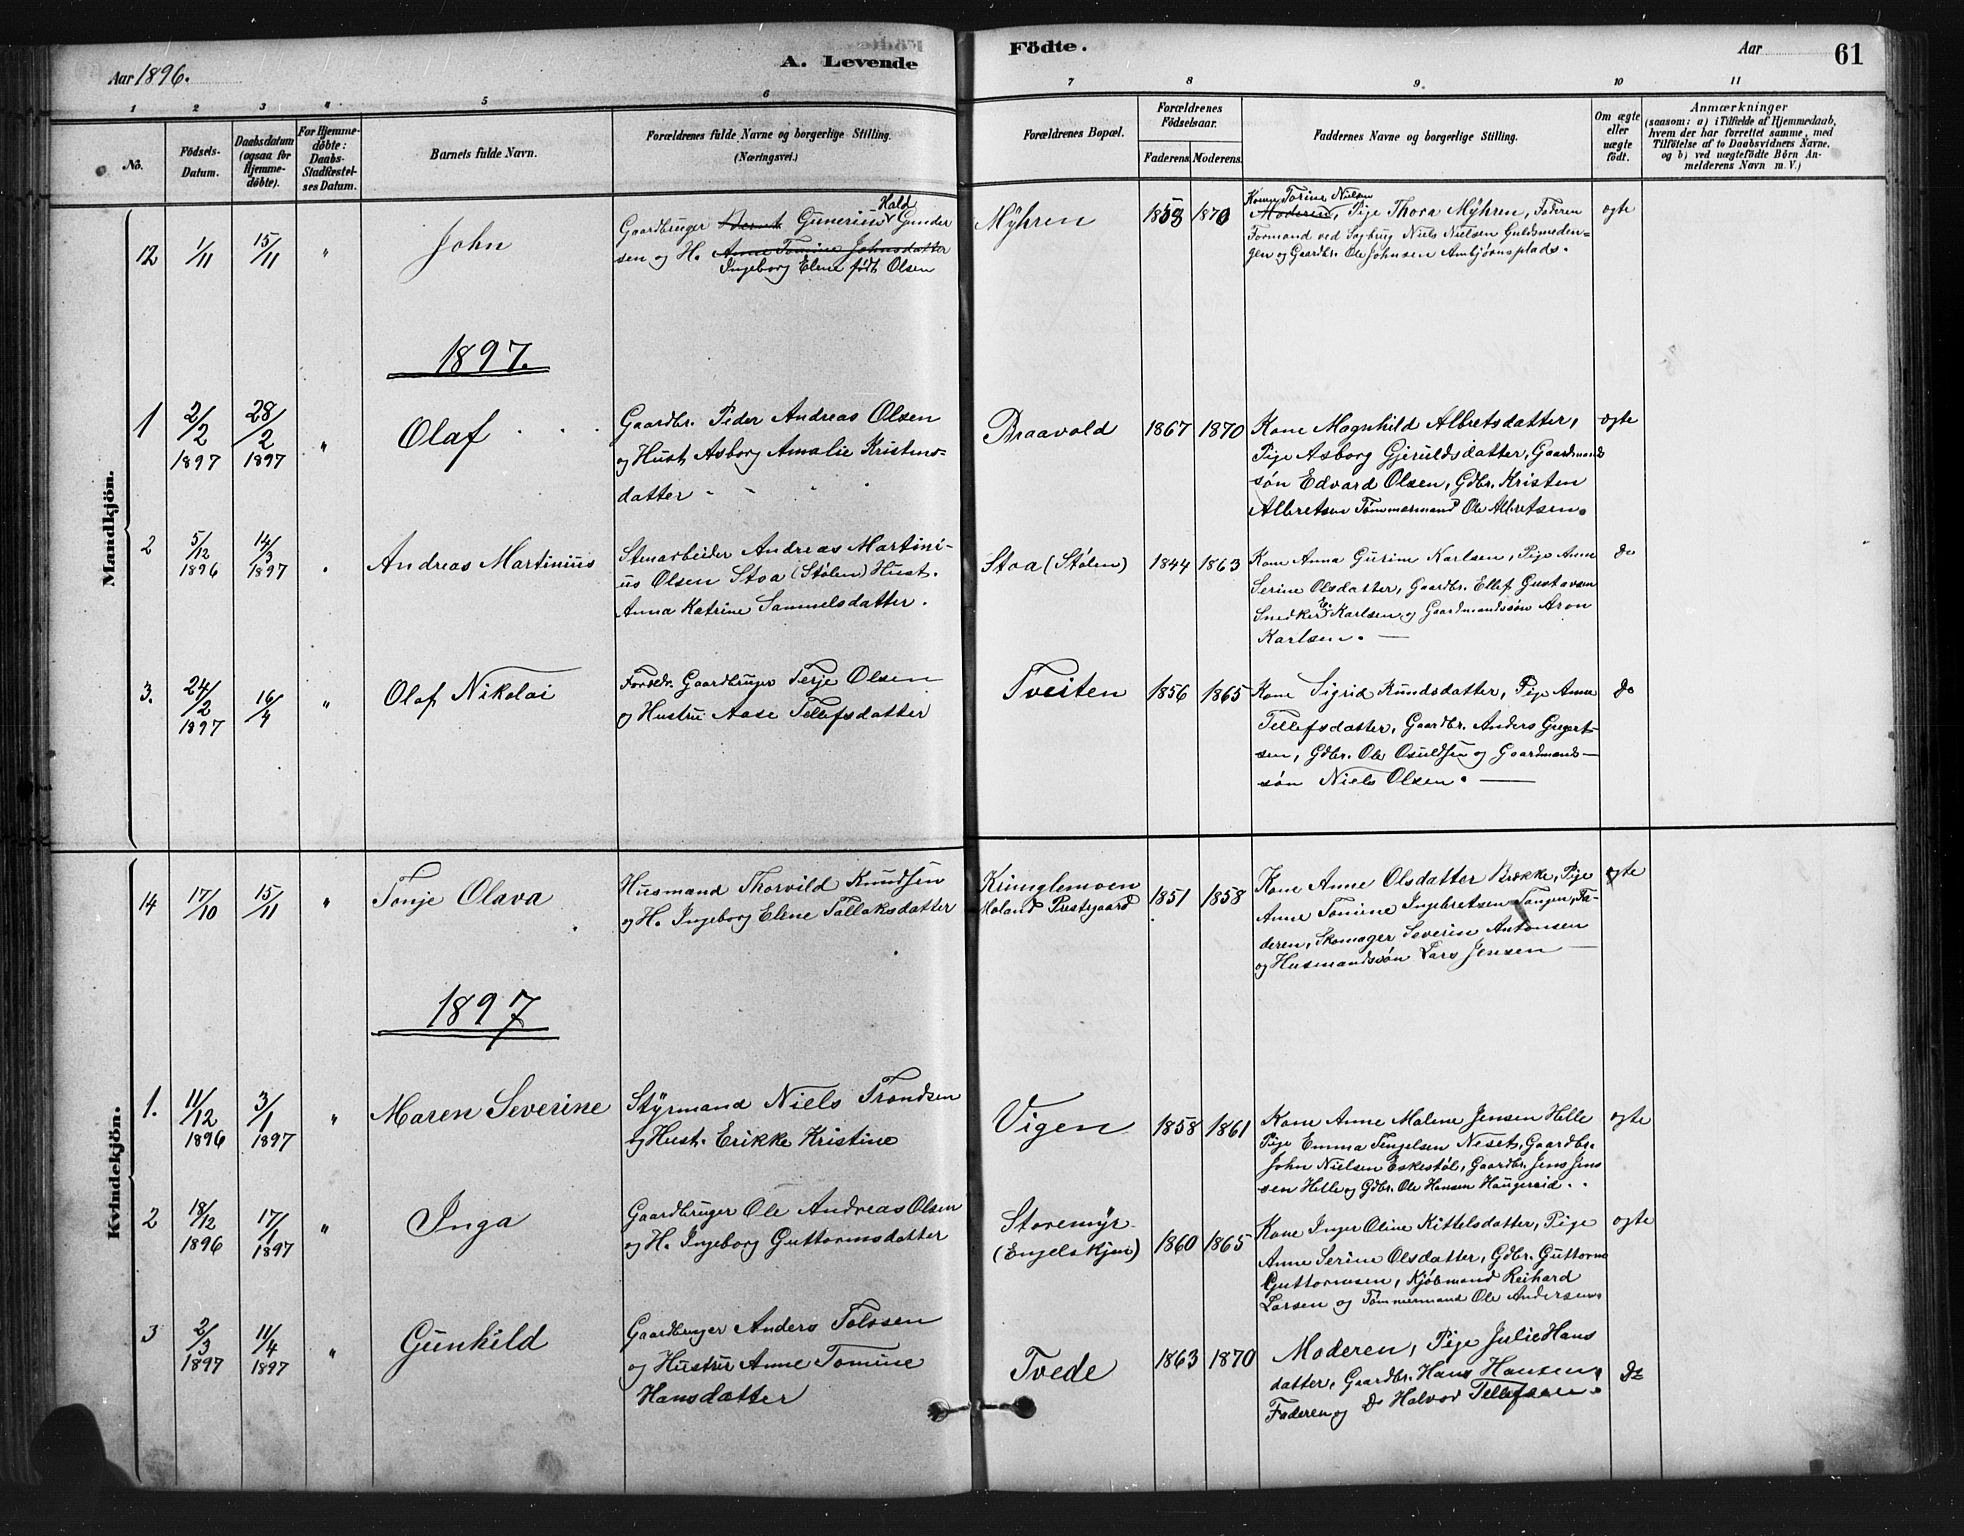 Aar 1896.
A. Levende
Födte.
Aar
61
1 2 3 4 5 6 7 8 9. 10 11
No.
Födsels-
Datum.
Daabsdatum
(ogsaa for
Hjemme-
döbte).
For Hjemme-
döbte:
Daabs-
Stadfæstel-
ses Datum.
Barnets fulde Navn.
Forældrenes fulde Navne og borgerlige Stilling.
(Næringsvei.)
Forældrenes Bopæl.
Forældrenes
Födselsaar.
Faderens. Moderens.
Faddernes Navne og borgerlige Stilling.
Om ægte
eller
uægte
födt.
Anmærkninger
(saasom: a) i Tilfælde af Hjemmedaab,
hvem der har forrettet samme, med
Tilföielse af to Daabsvidners Navne.
og b) ved uægtefödte Börn An-
melderens Navn m. V.)
Mandkjön.
12 1/11 15/11 " John
Hald
Gaardbruger Bernt Gunerius Gunder
sen og H. Anne Tomine Johnsdatter
Ingeborg Elene født Olsen
Myhren 1858 1870
Kone Torine Nielsen
Moderen, Pige Thora Myhren, Faderen
Formand ved Sagbrug Niels Nielsen Guldsmeden-
gen og Gaardbr. Ole Johnsen Ambjørnsplads.
ægte
1897.
1 2/2 1897 28/2 1897 " Olaf
Gaardbr. Peder Andreas Olsen
og Hust. Asborg Amalie Kristens-
datter
Braavold 1867 1870
Kone Magnhild Albretsdatter,
Pige Asborg Gjeruldsdatter, Gaardmands
søn Edvard Olsen, Gdbr. Kristen
Albretsen Tømmermand Ole Albretsen.
ægte
2 5/12 1896 14/3 1897 " Andreas Martinius
Stenarbeider Andreas Martini-
us Olsen Stoa (Stølen) Hust.
Anna Katrine Sammelsdatter.
Stoa (Stølen) 1844 1863
Kone Anna Gurine Karlsen, Pige Anne
Serine Olsdatter, Gaardbr. Ellef Gustavsen
Snedker Karlsen og Gaardmandssøn Aron
Karlsen.
do
3. 24/2 1897 16/4 " Olaf Nikolai
Forældr. Gaardbruger Terje Olsen
og Hustru Aase Tellefsdatter
Tveiten 1856 1865
Kone Sigrid Knudsdatter, Pige Anne
Tellefsdatter, Gaardbr. Anders Gregert-
sen, Gdbr. Ole Osuldsen og Gaardmands-
søn Niels Olsen.
do
Kvindekjön.
14 17/10 15/11 " Tonje Olava
Husmand Thorvild Knudsen
og H. Ingeborg Elene Tallaksdatter
Kringlemoen
Moland Prestegaard 1851 1858
Kone Anne Olsdatter Brække, Pige
Anne Tomine Ingebretsen Tangen, Fa-
deren, Skomager Severin Antonsen
og Husmandssøn Lars Jensen
ægte
1897
1. 11/12 1896 3/1 1897 " Maren Severine
Styrmand Niels Trondsen
og Hust. Erikke Kristine
Vigen 1858 1861
Kone Anne Malene Jensen Helle
Pige Emma Tengelsen Neset, Gaardbr.
John Nielsen Eskestøl, Gaardbr. Jens Jens
sen Helle og Gdbr. Ole Hansen Haugereid.
ægte
2 18/12 1896 17/1 1897 " Inga
Gaardbruger Ole Andreas Olsen
og H. Ingeborg Guttormsdatter
Storemyr
(Engelskjøn) 1860 1865
Kone Inger Oline Kittelsdatter, Pige
Anne Serine Olsdatter, Gdbr. Guttorm
Guttormsen, Kjøbmand Reihard
Larsen og Tømmermand Ole Andersen.
ægte
3 2/3 1897 11/4 1897 " Gunhild
Gaardbruger Anders Tolssen
og Hustru Anne Tomine
Hansdatter
Tvede 1863 1870
Moderen, Pige Julie Hans
datter, Gaardbr. Hans Hansen,
Faderen og Do Halvor Tellefsen.
do